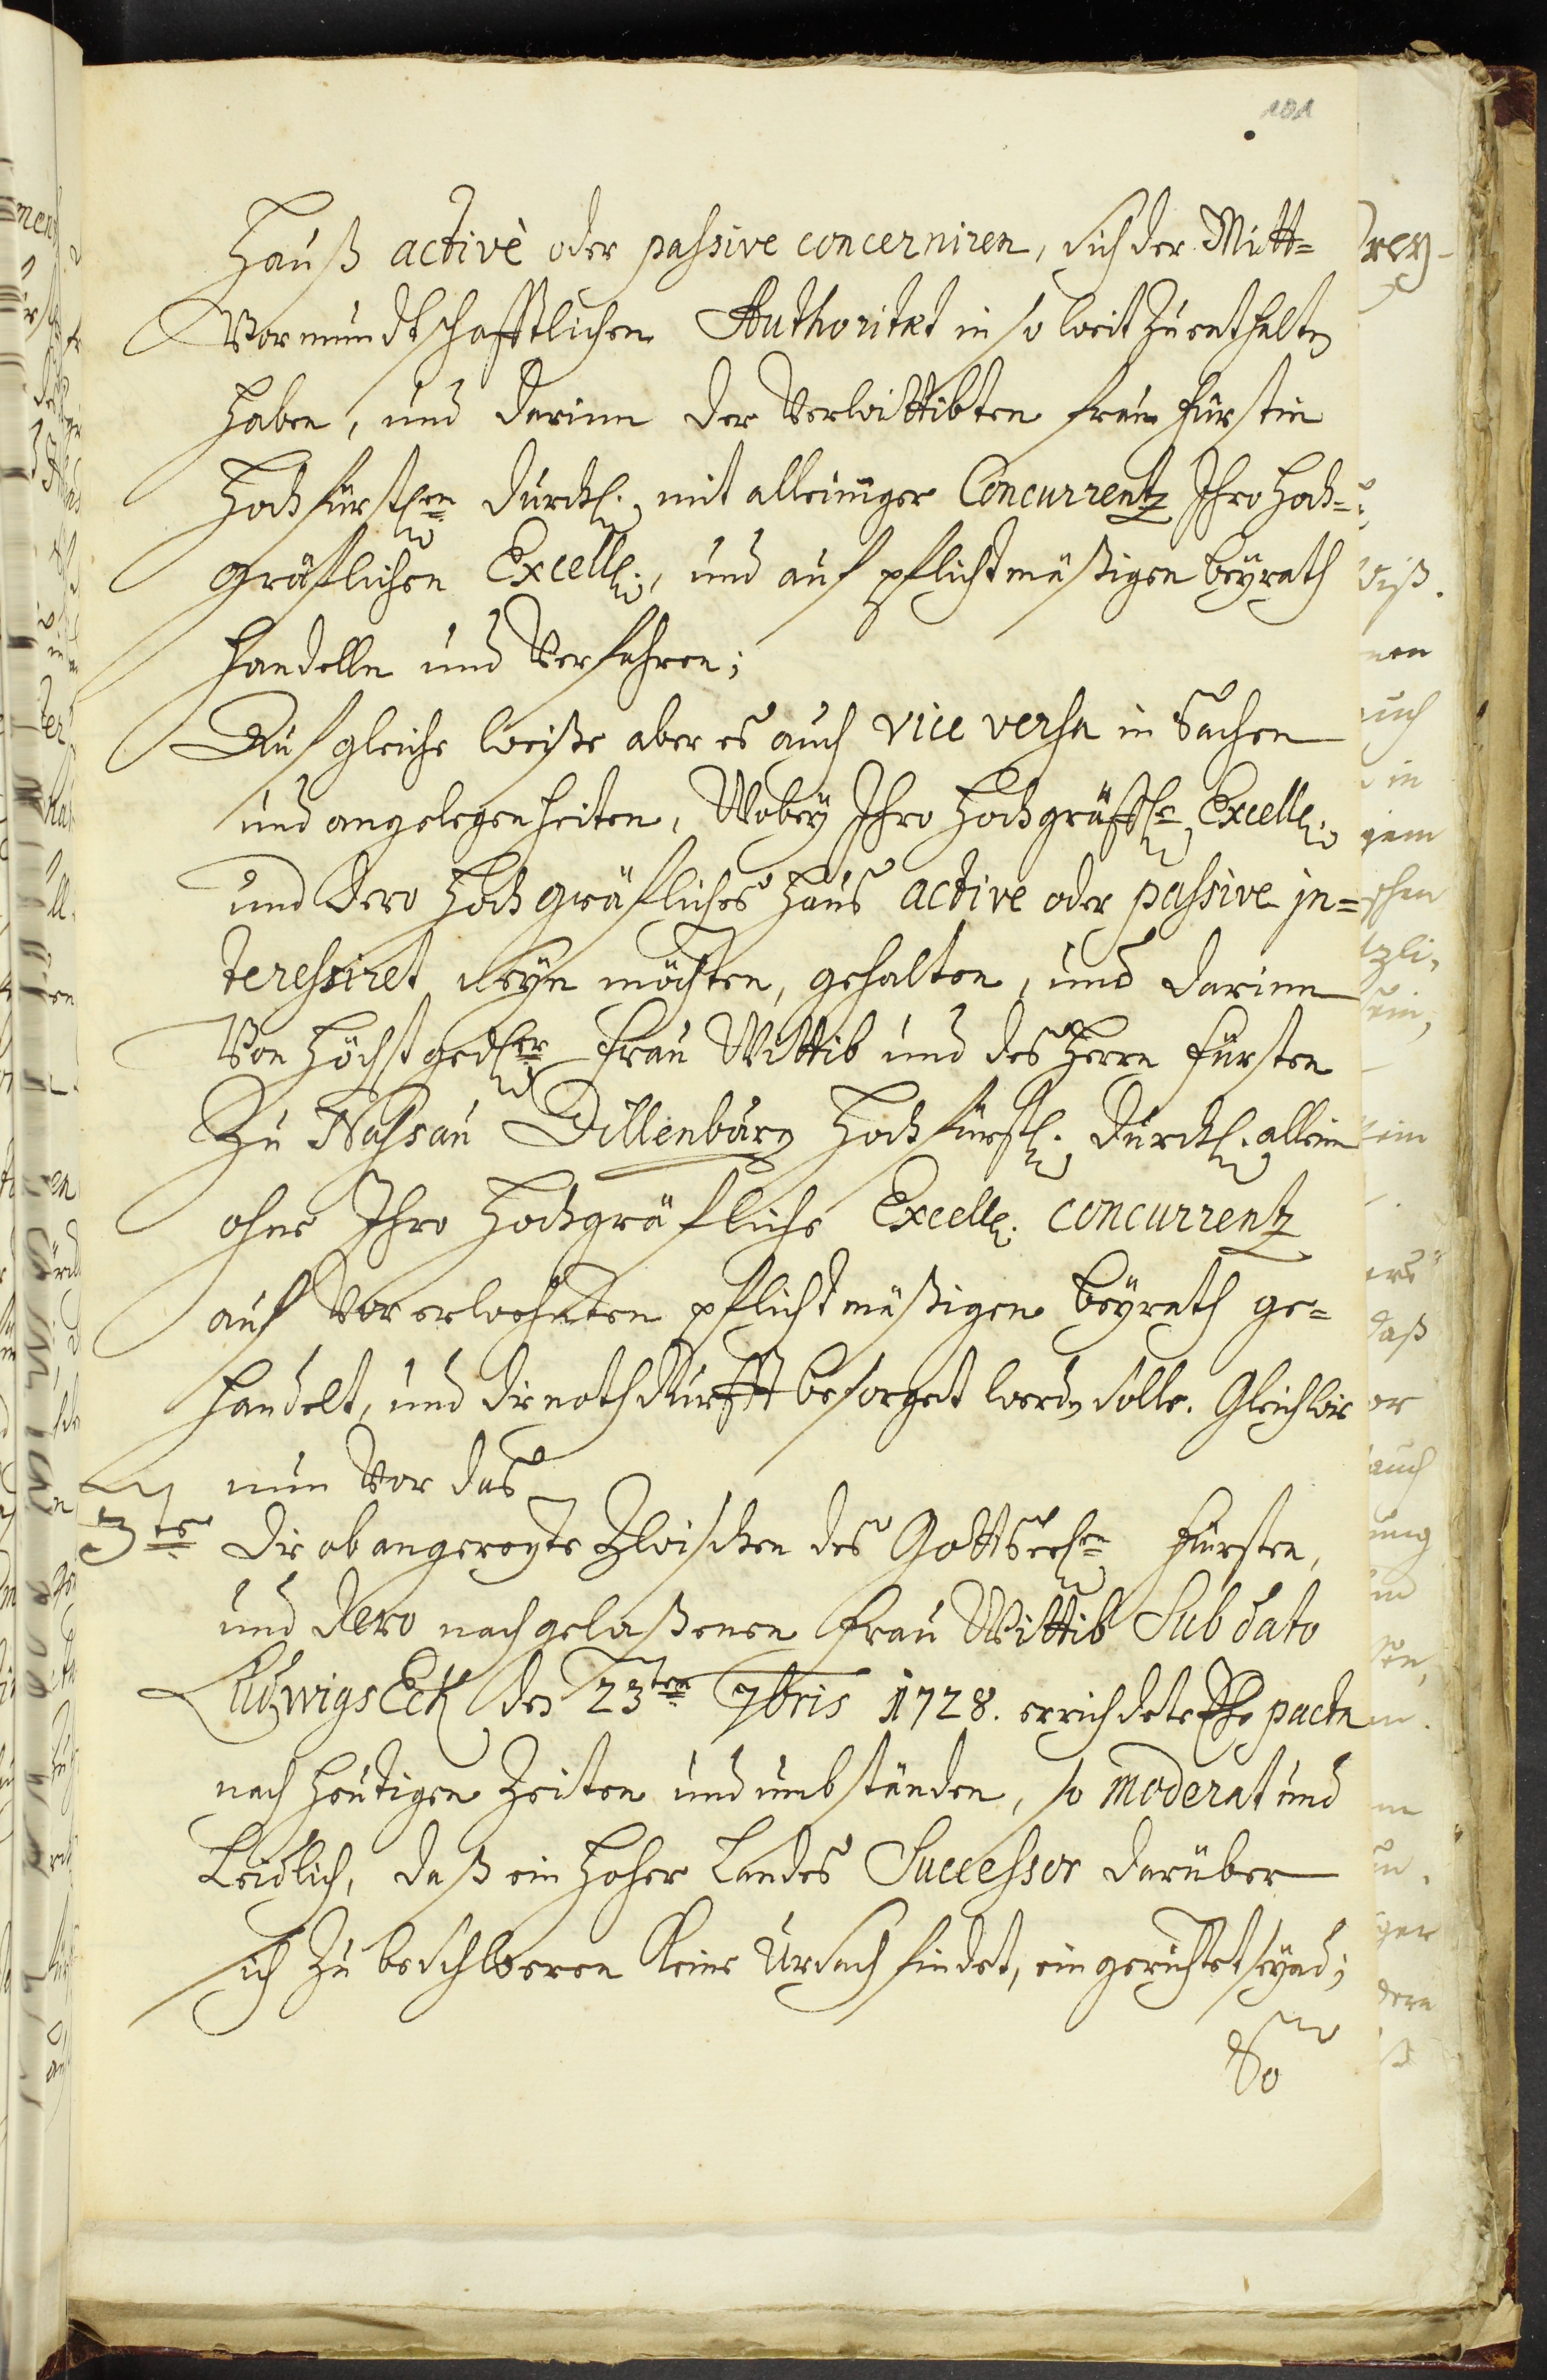 101
Hauß activè oder passive concerniren, sich der Mitt=
Vormundtschafftlichen Authoritæt in so weit zu enthalten
haben, und darinn der Verwittibten Frau Fürstin
Hochfürstlen Durchl. mit alleiniger Concurrentz Ihro Hoch=
gräflichen Excell., und auf pflichtmäßigen beyrath
handelln und Verfahren;
Auf gleiche weiße aber es auch vice versa in Sachen
und angelegenheiten, Wobey Ihro Hochgräffle Excell.
und dero Hochgräfliches Haus active oder passive in=
teressiret seyn möchten, gehalten, und darinn
Von Höchstgedler Frau Wittib und des Herrn Fürsten
Zu Nassau Dillenburg Hochfürstl. Durchl. allein
ohne Ihro Hochgräfliche Excell. concurrentz
auf Vorerwehnten pflichtmäßigen beyrath ge=
handelt, und die nothdurfft besorget werden solle. Gleichwie
nun Vor das
3te die obangeregte Zwischen des Gottseeln Fürsten,
und dero nachgelaßenen Frau Wittib Sub dato
LudwigsEck den 23ten 7bris 1728. errichdete Ehe pacta
nach heutigen Zeiten und umbständen, so moderat und
Leidlich, daß ein Hoher Landes Successor darüber
sich zu beschweren Keine Ursach findet, eingerichtet seynd;
So